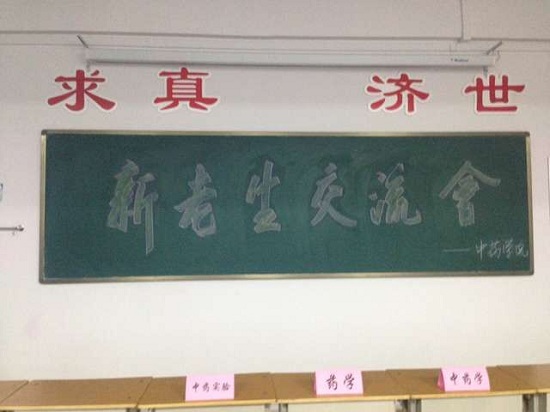 求真 济世
新老生交流會
——中药学院
中药实验
药学
中药学